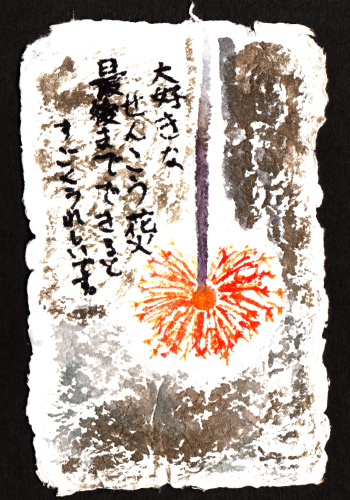 大好きな
せんこう花火
最後までできると
すごくうれしいです。